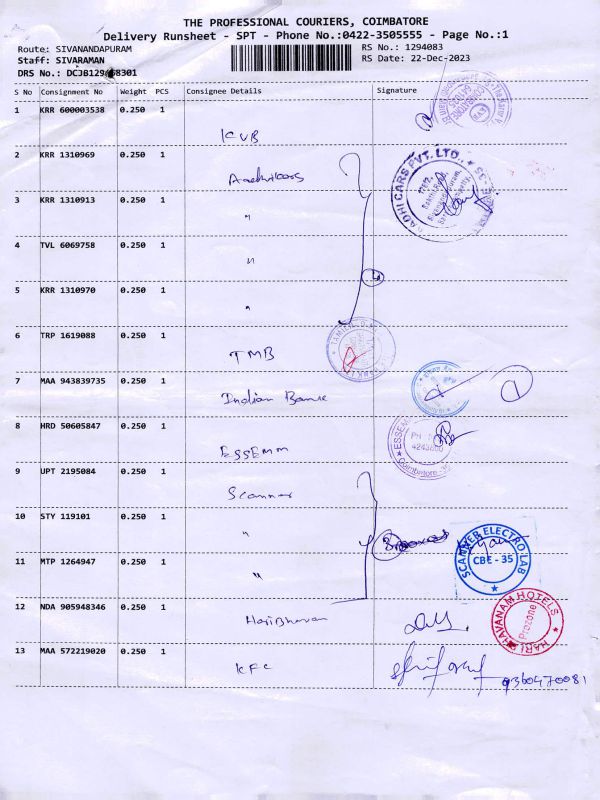 THE PROFESSIONAL COURIERS, COIMBATORE
Delivery Runsheet - SPT - Phone No.:0422-3505555 - Page No.:1
Route: SIVANANDAPURAM RS No.: 1294083
Staff: SIVARAMAN RS Date: 22-Dec-2023
S No Consignment No Weight PCS Consignee Details Signature
1 KRR 600003538 0.250 1
KVB
2 KRR 1310969 0.250 1
3 KRR 1310913 0.250 1
"
4 TVL 6069758 0.250 1
"
5 KRR 1310970 0.250 1
"
6 TRP 1619088 0.250 1
TMB
7 MAA 943839735 0.250 1
Indian Bank
8 HRD 50605847 0.250 1
ESSEMM
9 UPT 2195084 0.250 1
Scanner
10 STY 119101 0.250 1
"
11 MTP 1264947 0.250 1
"
12 NDA 905948346 0.250 1
HariBhavan
13 MAA 572219020 0.250 1
KFC
9360470081
ADHI CARS PVT. LTD.
ESSEMM
Coimbatore
SCANNER ELECTRO LAB
CBE - 35
HARI BHAVANAM HOTELS
Prozone